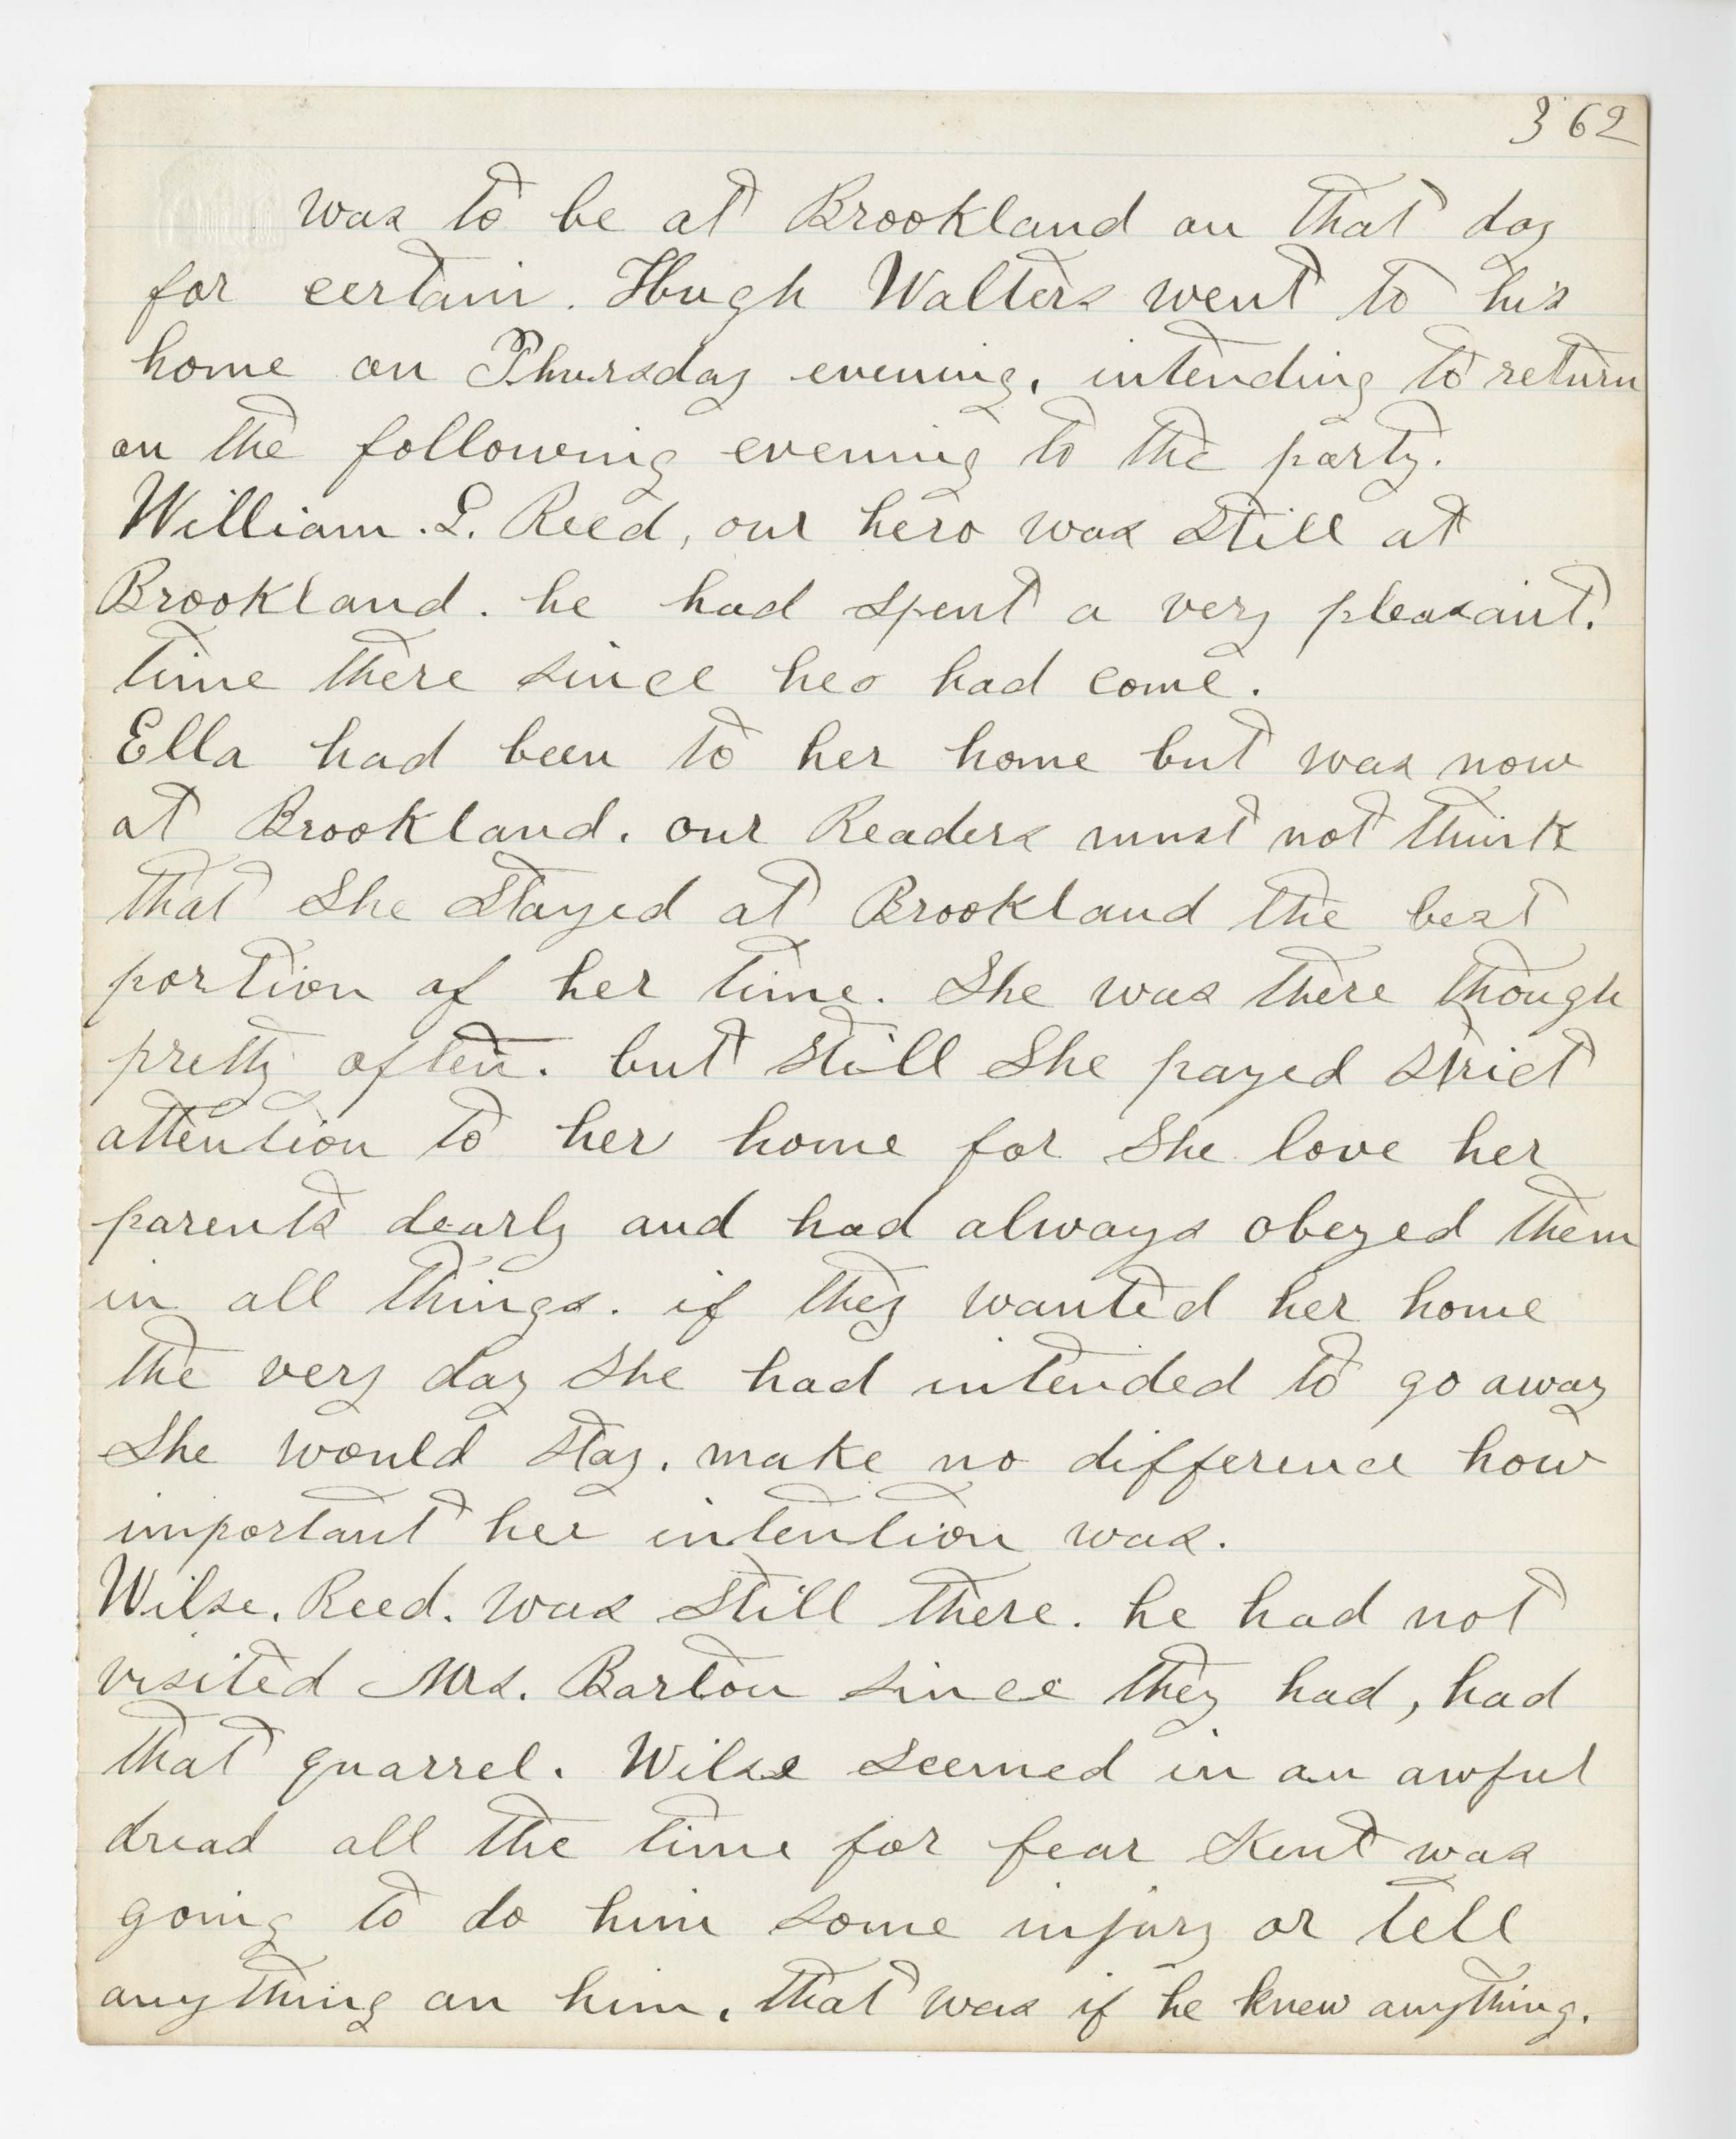 362
was to be at Brookland on that day
for certain. Hugh Walters went to his
home on Thursday evening, intending to return
on the following evening to the party.
William. L. Reed, our hero was still at
Brookland. he had spent a very pleasant.
time there since heo had come.
Ella had been to her home but was now
at Brookland. our Readers must not think
that She Stayed at Brookland the best
portion of her time. She was there though
pretty often. but still She payed strict
attention to her home for She love her
parents dearly and had always obeyed them
in all things. if they wanted her home
the very day she had intended to go away
She would stay. make no difference how
important her intention was.
Wilse. Reed. was still there. he had not
visited Mrs. Barton since they had, had
that quarrel. Wilse seemed in an awful
dread all the time for fear Kent was
going to do him some injury or tell
anything on him, that was if he knew anything.